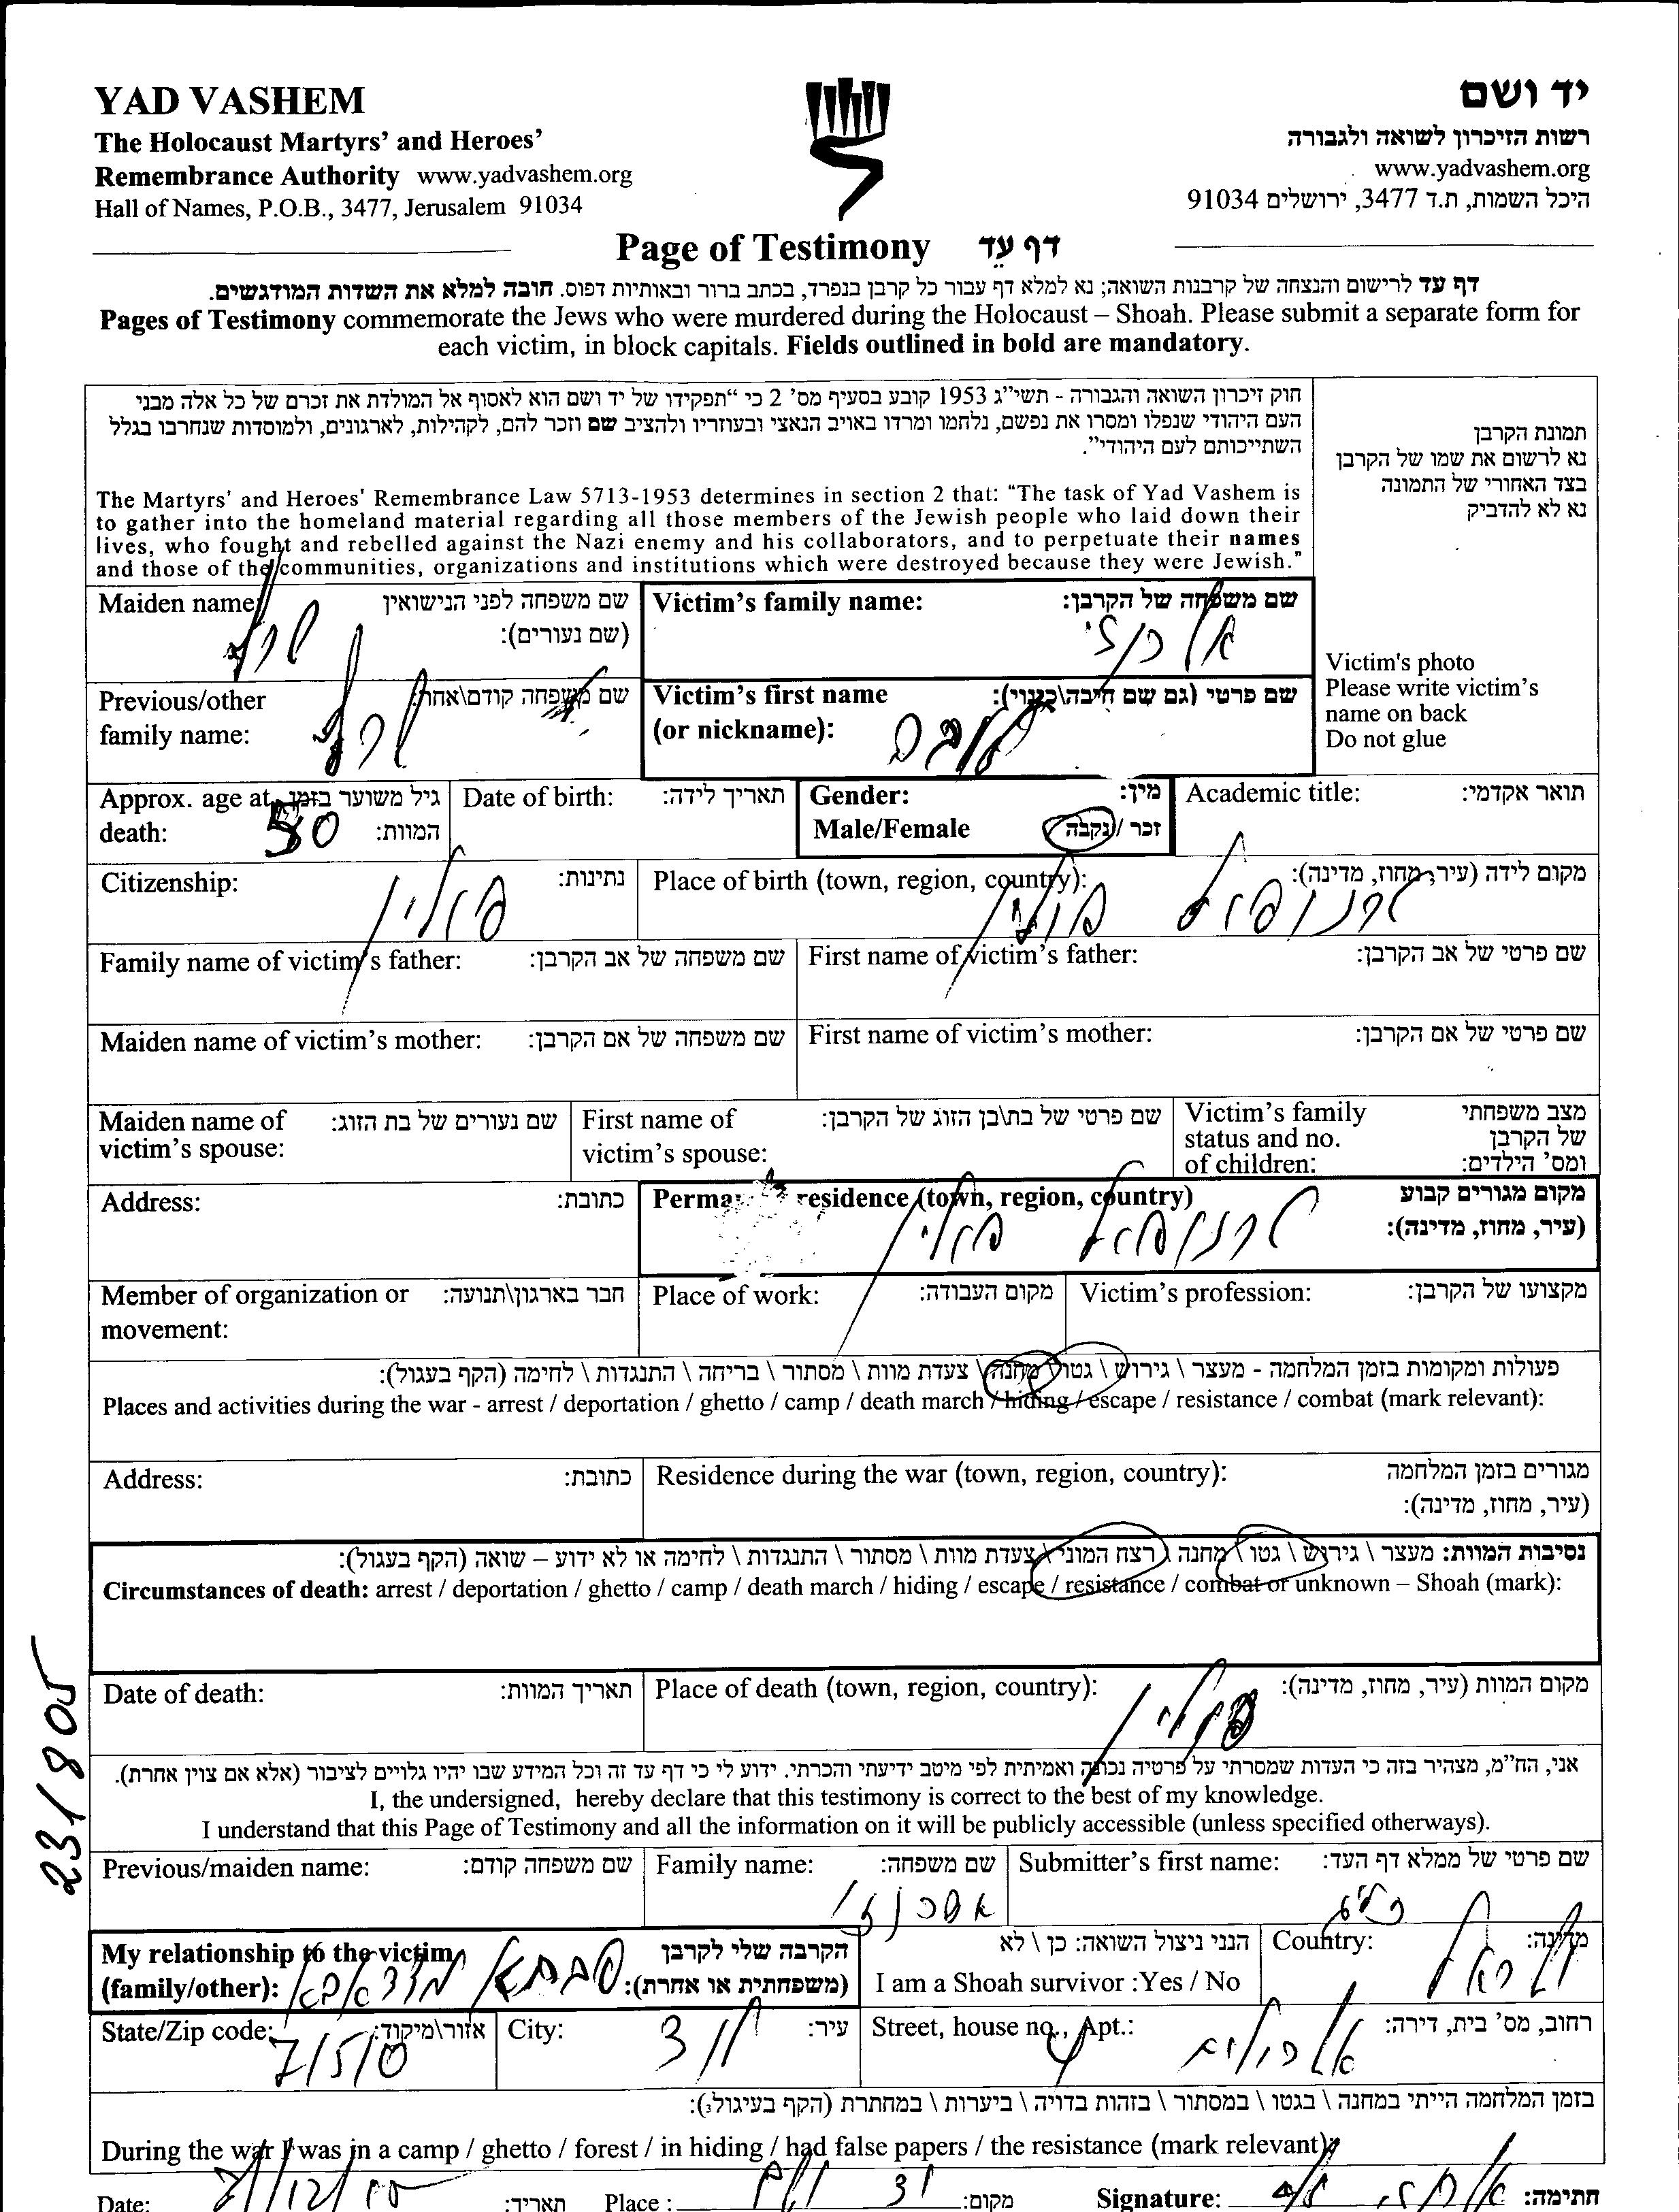 YAD VASHEM
The Holocaust Martyrs' and Heroes'
Remembrance Authority www.yadvashem.org
Hall of Names, P.O.B., 3477, Jerusalem 91034
יד ושם
רשות הזיכרון לשואה ולגבורה
www.yadvashem.org
היכל השמות, ת.ד 3477, ירושלים 91034
Page of Testimony דף עֵד
דף עד לרישום והנצחה של קרבנות השואה; נא למלא דף עבור כל קרבן בנפרד, בכתב ברור ובאותיות דפוס. חובה למלא את השדות המודגשים.
Pages of Testimony commemorate the Jews who were murdered during the Holocaust – Shoah. Please submit a separate form for
each victim, in block capitals. Fields outlined in bold are mandatory.
חוק זיכרון השואה והגבורה - תשי"ג 1953 קובע בסעיף מס' 2 כי "תפקידו של יד ושם הוא לאסוף אל המולדת את זכרם של כל אלה מבני
העם היהודי שנפלו ומסרו את נפשם, נלחמו ומרדו באויב הנאצי ובעוזריו ולהציב שם וזכר להם, לקהילות, לארגונים, ולמוסדות שנחרבו בגלל
השתייכותם לעם היהודי".
The Martyrs' and Heroes' Remembrance Law 5713-1953 determines in section 2 that: "The task of Yad Vashem is
to gather into the homeland material regarding all those members of the Jewish people who laid down their
lives, who fought and rebelled against the Nazi enemy and his collaborators, and to perpetuate their names
and those of the communities, organizations and institutions which were destroyed because they were Jewish."
תמונת הקרבן
נא לרשום את שמו של הקרבן
בצד האחורי של התמונה
נא לא להדביק
Victim's photo
Please write victim's
name on back
Do not glue
Maiden name: שם משפחה לפני הנישואין
(שם נעורים):
Victim's family name: שם משפחה של הקרבן:
Previous/other שם משפחה קודם\אחר:
family name:
Victim's first name שם פרטי (גם שם חיבה\כינוי):
(or nickname):
Approx. age at גיל משוער בזמן
death: 50 המוות:
Date of birth: תאריך לידה:
Gender: מין:
Male/Female זכר / נקבה
Academic title: תואר אקדמי:
Citizenship: נתינות:
פולין
Place of birth (town, region, country): מקום לידה (עיר, מחוז, מדינה):
טרנופול פולין
Family name of victim's father: שם משפחה של אב הקרבן:
First name of victim's father: שם פרטי של אב הקרבן:
Maiden name of victim's mother: שם משפחה של אם הקרבן:
First name of victim's mother: שם פרטי של אם הקרבן:
Maiden name of שם נעורים של בת הזוג:
victim's spouse:
First name of שם פרטי של בת\בן הזוג של הקרבן:
victim's spouse:
Victim's family מצב משפחתי
status and no. של הקרבן
of children: ומס' הילדים:
Address: כתובת:
residence (town, region, country) מקום מגורים קבוע
(עיר, מחוז, מדינה):
טרנופול פולין
Member of organization or חבר בארגון\תנועה:
movement:
Place of work: מקום העבודה:
Victim's profession: מקצועו של הקרבן:
פעולות ומקומות בזמן המלחמה - מעצר \ גירוש \ גטו \ מחנה \ צעדת מוות \ מסתור \ בריחה \ התנגדות \ לחימה (הקף בעגול):
Places and activities during the war - arrest / deportation / ghetto / camp / death march / hiding / escape / resistance / combat (mark relevant):
Address: כתובת:
Residence during the war (town, region, country): מגורים בזמן המלחמה
(עיר, מחוז, מדינה):
נסיבות המוות: מעצר \ גירוש \ גטו \ מחנה \ רצח המוני \ צעדת מוות \ מסתור \ התנגדות \ לחימה או לא ידוע – שואה (הקף בעגול):
Circumstances of death: arrest / deportation / ghetto / camp / death march / hiding / escape / resistance / combat or unknown – Shoah (mark):
Date of death: תאריך המוות:
Place of death (town, region, country): מקום המוות (עיר, מחוז, מדינה):
פולין
אני, הח"מ, מצהיר בזה כי העדות שמסרתי על פרטיה נכונה ואמיתית לפי מיטב ידיעתי והכרתי. ידוע לי כי דף עד זה וכל המידע שבו יהיו גלויים לציבור (אלא אם צוין אחרת).
I, the undersigned, hereby declare that this testimony is correct to the best of my knowledge.
I understand that this Page of Testimony and all the information on it will be publicly accessible (unless specified otherways).
231805
Previous/maiden name: שם משפחה קודם:
Family name: שם משפחה:
אשכנזי
Submitter's first name: שם פרטי של ממלא דף העד:
My relationship to the victim הקרבה שלי לקרבן
(family/other): (משפחתית או אחרת):
סבתא מצד אבא
הנני ניצול השואה: כן \ לא
I am a Shoah survivor :Yes / No
Country: מדינה:
ישראל
State/Zip code: אזור\מיקוד:
71510
City: עיר:
לוד
Street, house no., Apt.: רחוב, מס' בית, דירה:
4
בזמן המלחמה הייתי במחנה \ בגטו \ במסתור \ בזהות בדויה \ ביערות \ במחתרת (הקף בעיגול):
During the war I was in a camp / ghetto / forest / in hiding / had false papers / the resistance (mark relevant)
Date: תאריך: Place : מקום: Signature: חתימה: